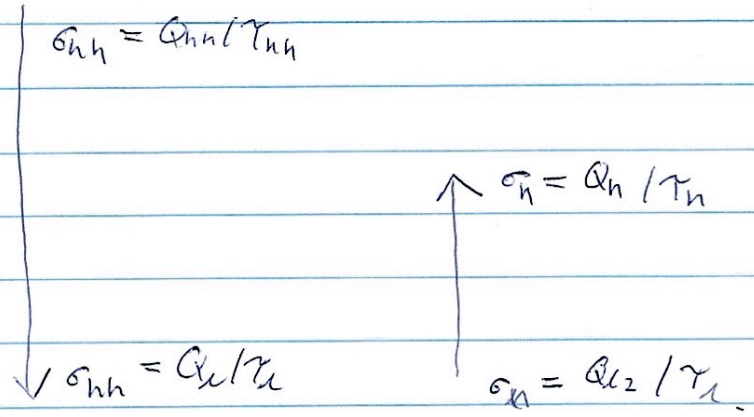 σhh = Qhh/τhh
σh = Qh/τh
σhh = Qc/τc
σh = Qc2/τc